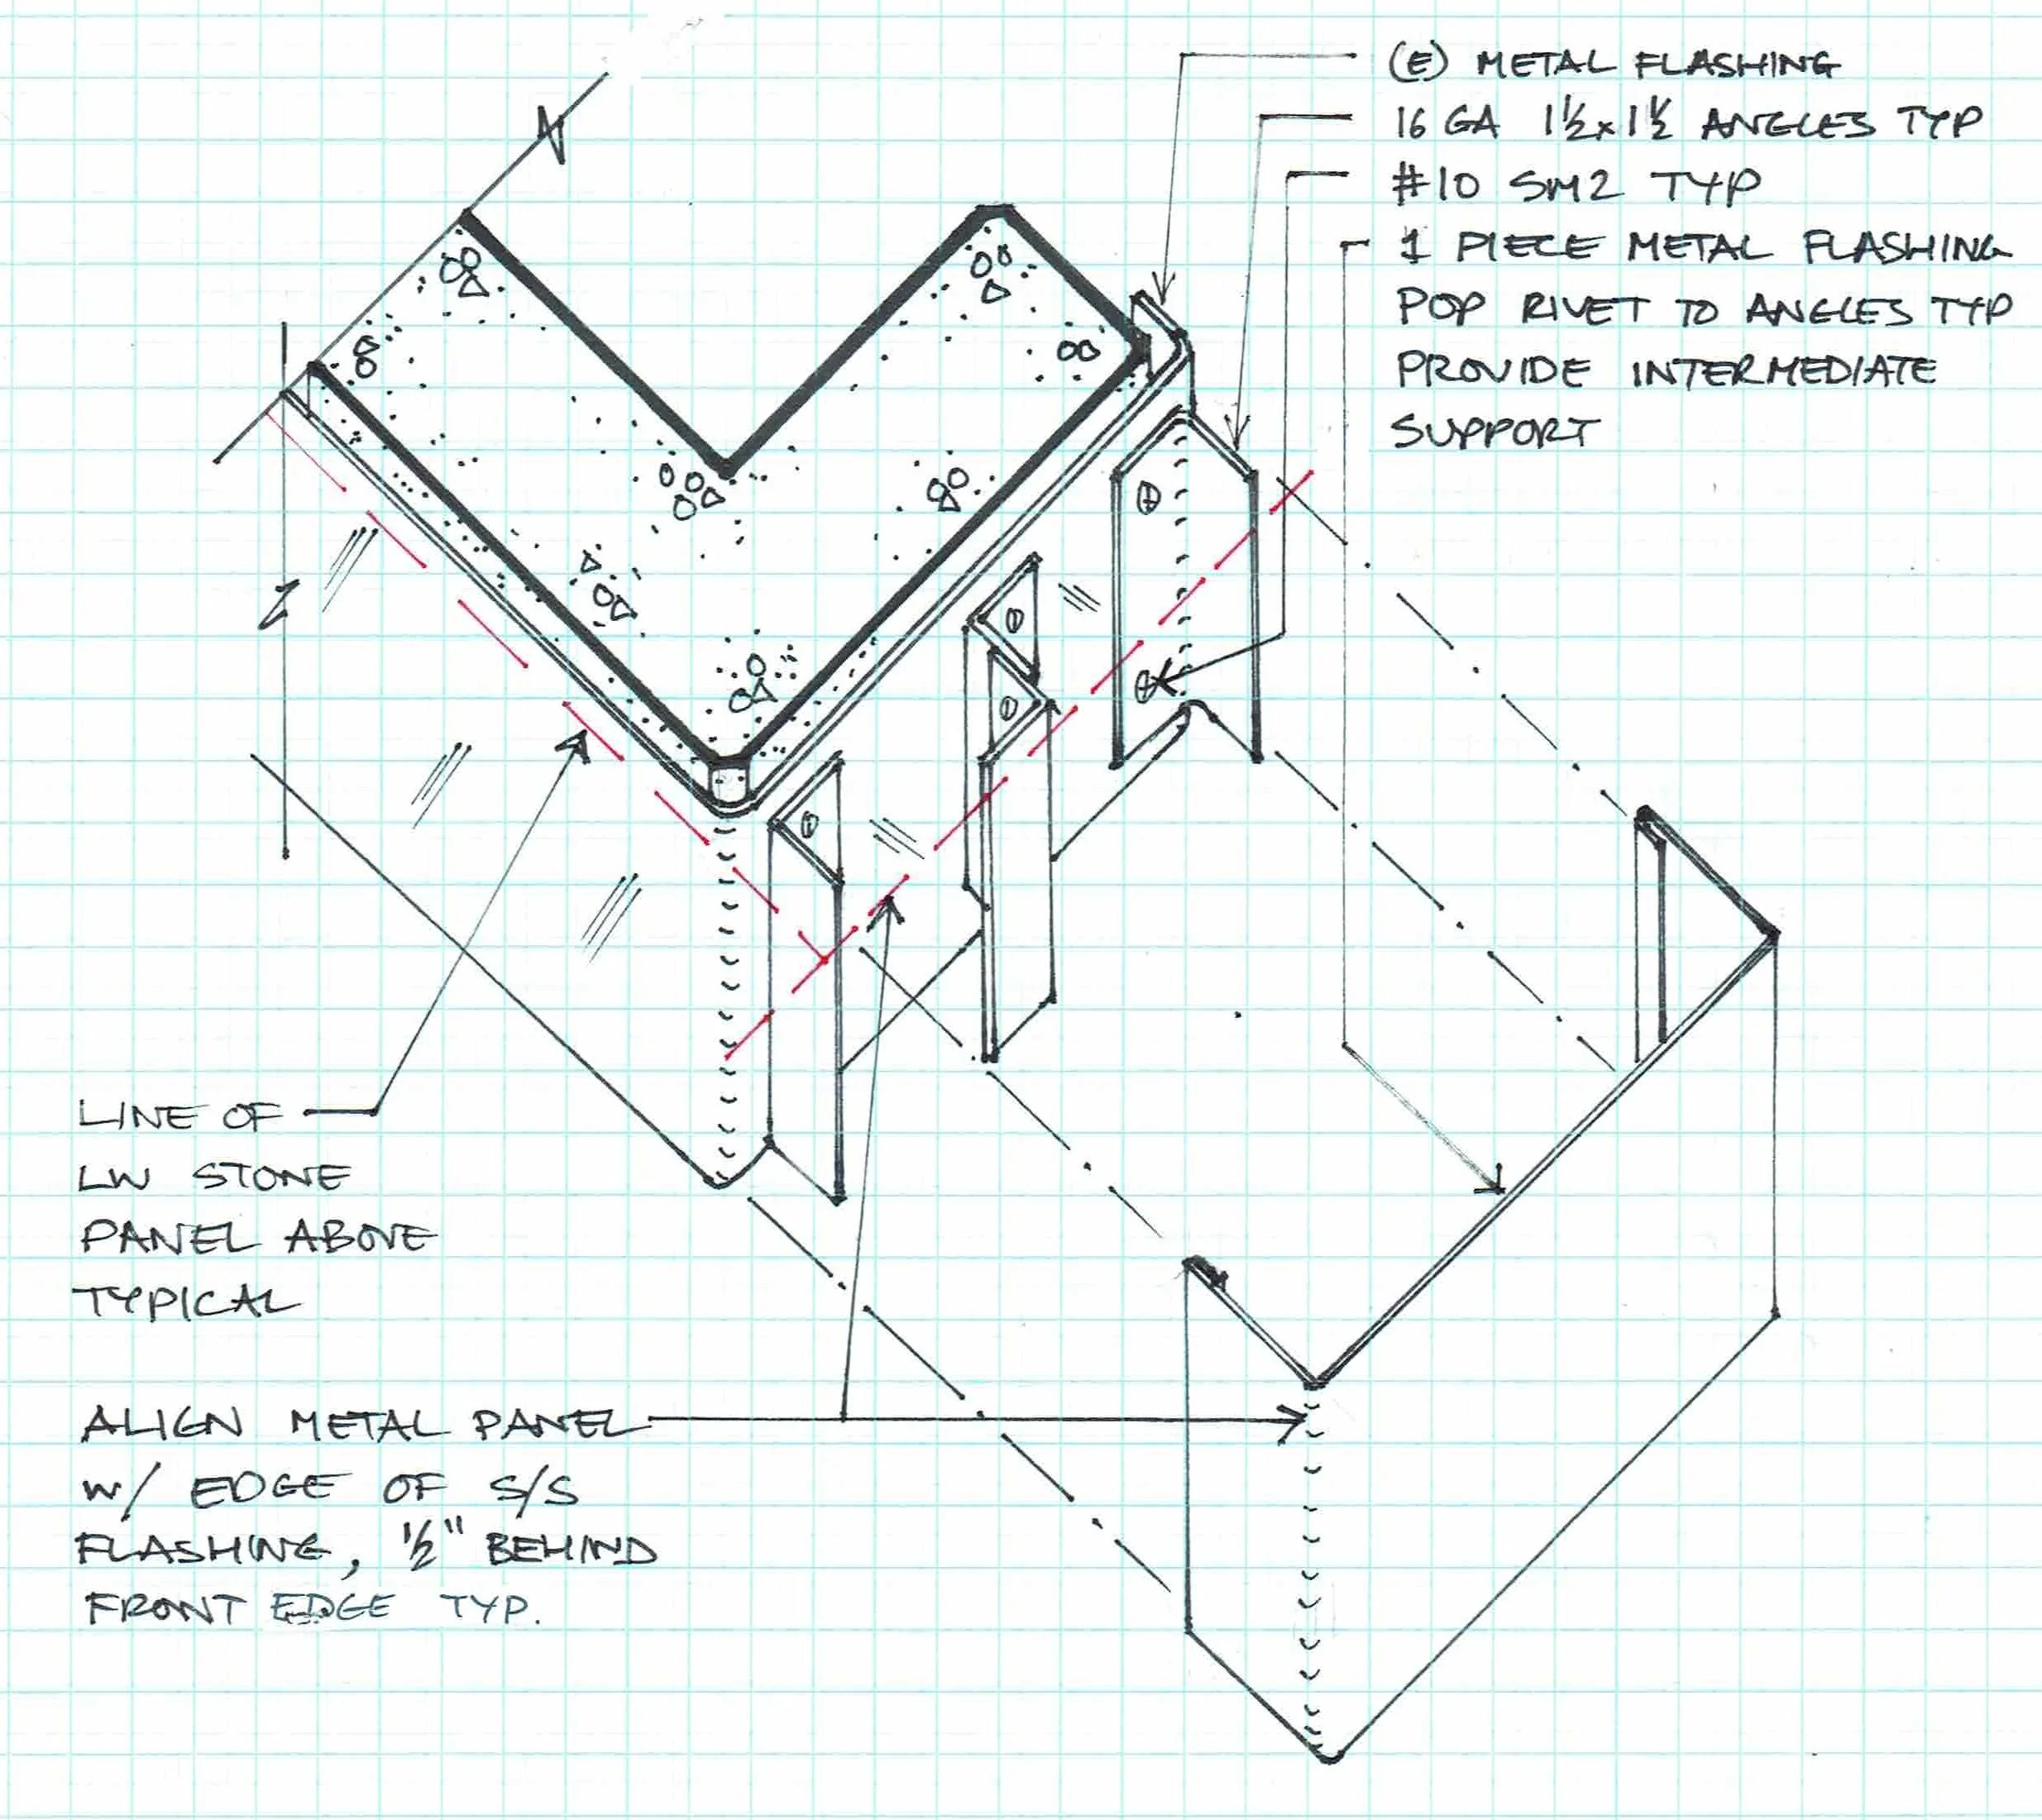 (E) METAL FLASHING
16 GA 1½x1½ ANGLES TYP
#10 SM2 TYP
1 PIECE METAL FLASHING
POP RIVET TO ANGLES TYP
PROVIDE INTERMEDIATE
SUPPORT
LINE OF
LW STONE
PANEL ABOVE
TYPICAL
ALIGN METAL PANEL
W/ EDGE OF S/S
FLASHING, ½" BEHIND
FRONT EDGE TYP.